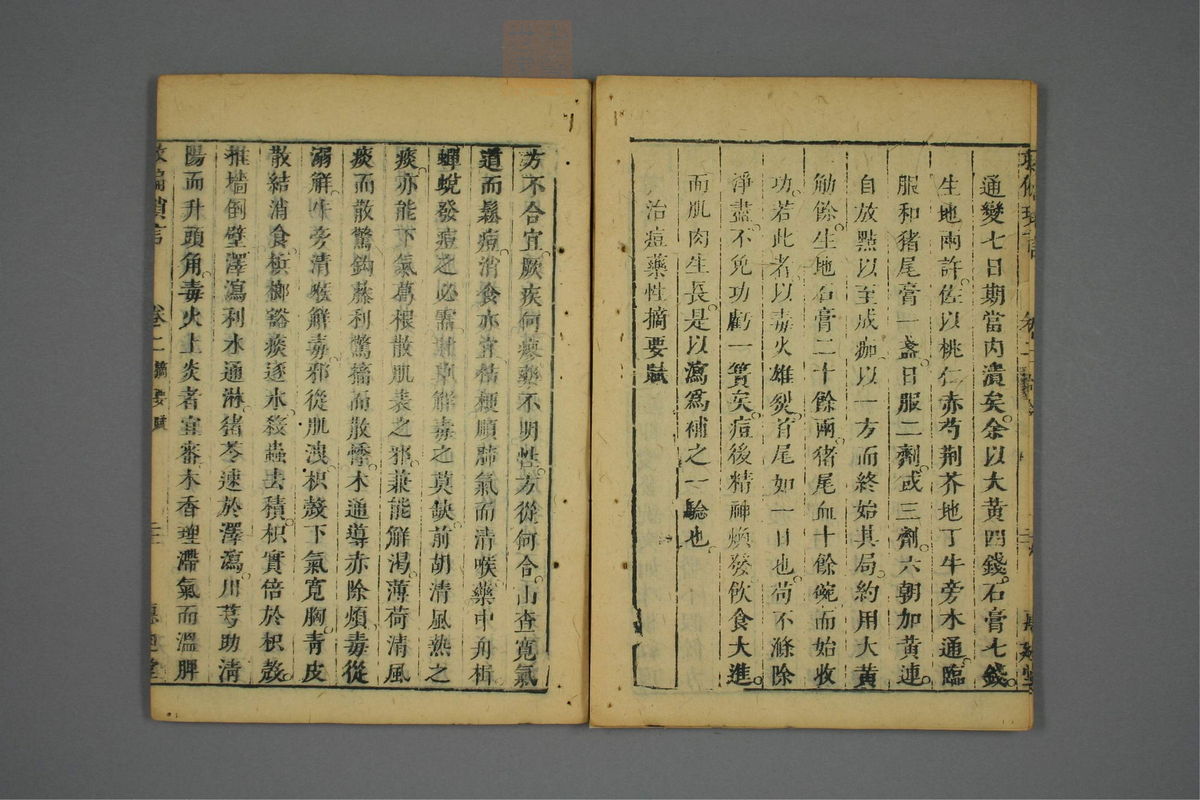 通變七日期當內潰矣余以大黃四錢石膏七錢
生地兩許佐以桃仁赤芍荆芥地丁牛旁木通臨
服和猪尾膏一盞日服二劑或三劑六朝加黃連
自放點以至成痂以一方而終始其局約用大黃
觔餘生地石膏二十餘兩猪尾血十餘碗而始收
功若此者以毒火雄烈首尾如一日也苟不滌除
淨盡不免功虧一簣矣痘後精神煥發飲食大進
而肌肉生長是以瀉為補之一驗也
治痘藥性摘要賦
方不合宜厥疾何瘳藥不明性方從何合山查寬氣
道而鬆痘消食亦宜桔梗順肺氣而清喉藥中舟楫
蟬蛻發痘之必需解毒之莫缺前胡清風熱之
痰亦能下氣葛根散肌表之邪兼能解渴薄荷清風
痰而散驚鈎藤利驚搐而散熱木通導赤除煩毒從
溺解牛旁清喉解毒邪從肌洩枳殼下氣寬胸靑皮
散結消食梹榔豁痰逐水殺蟲去積枳實倍於枳殼
推墻倒壁澤瀉利水通淋猪苓速於澤瀉川芎助淸
陽而升頭角毒火上炎者宜審木香理滯氣而溫脾
救偏瑣言 卷二 摘要賦